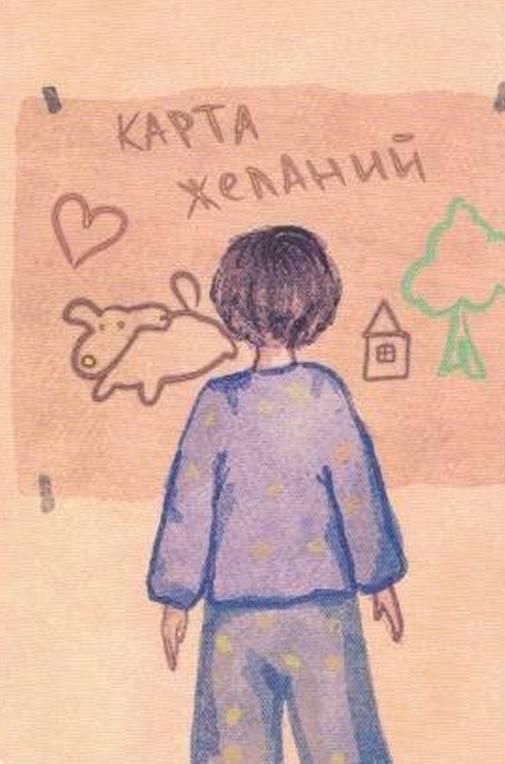 КАРТА
ЖЕЛАНИЙ